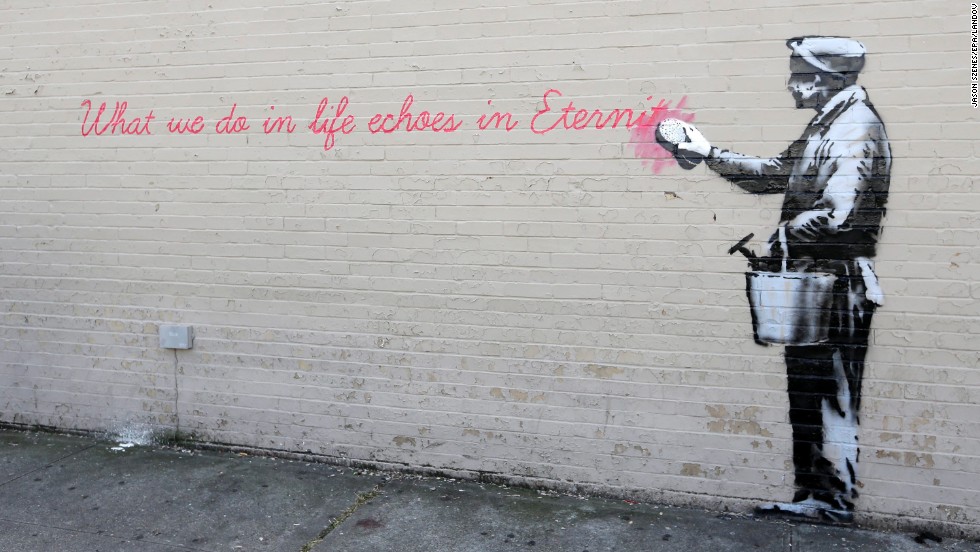 What we do in life echoes in Eternit
JASON SZENES/EPA/LANDOV